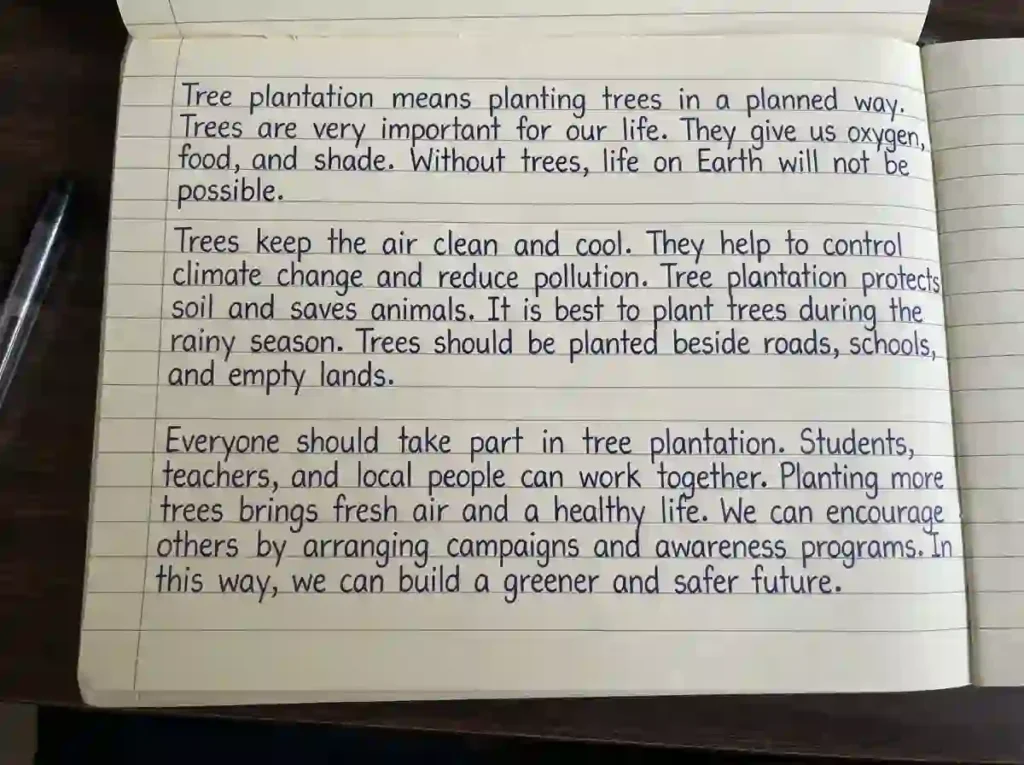 Tree plantation means planting trees in a planned way.
Trees are very important for our life. They give us oxygen,
food, and shade. Without trees, life on Earth will not be
possible.
Trees keep the air clean and cool. They help to control
climate change and reduce pollution. Tree plantation protects
soil and saves animals. It is best to plant trees during the
rainy season. Trees should be planted beside roads, schools,
and empty lands.
Everyone should take part in tree plantation. Students,
teachers, and local people can work together. Planting more
trees brings fresh air and a healthy life. We can encourage
others by arranging campaigns and awareness programs. In
this way, we can build a greener and safer future.